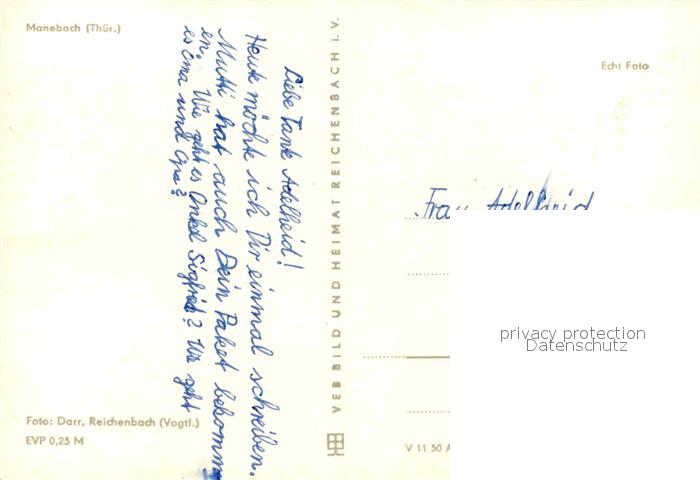 Manebach (Thür.)
Liebe Tante Adelheid!
Heute möchte ich Dir einmal schreiben.
Mutti hat auch Dein Paket bekomm
en. Wie geht es Onkel Siegfried? Wie geht
es Oma und Opa?
Foto: Darr, Reichenbach (Vogtl.)
EVP 0,25 M
VEB BILD UND HEIMAT REICHENBACH I. V.
Echt Foto
Frau Adelheid
privacy protection
Datenschutz
V 11 50 A